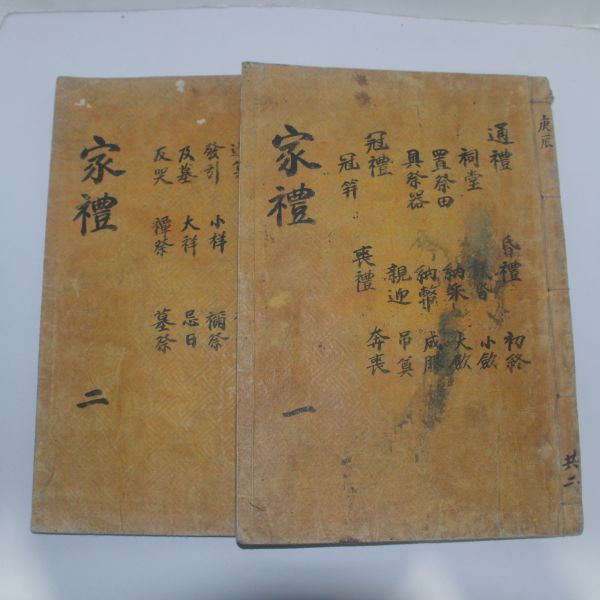 庚辰
共二
通禮 昏禮 初終
祠堂 昏 小歛
置祭田 納采 大歛
具祭器 納幣 成服
冠禮 親迎 吊奠
冠笄 喪禮 奔喪
家禮 一
發引 小祥 禰祭
及墓 大祥 忌日
反哭 禫祭 墓祭
家禮 二